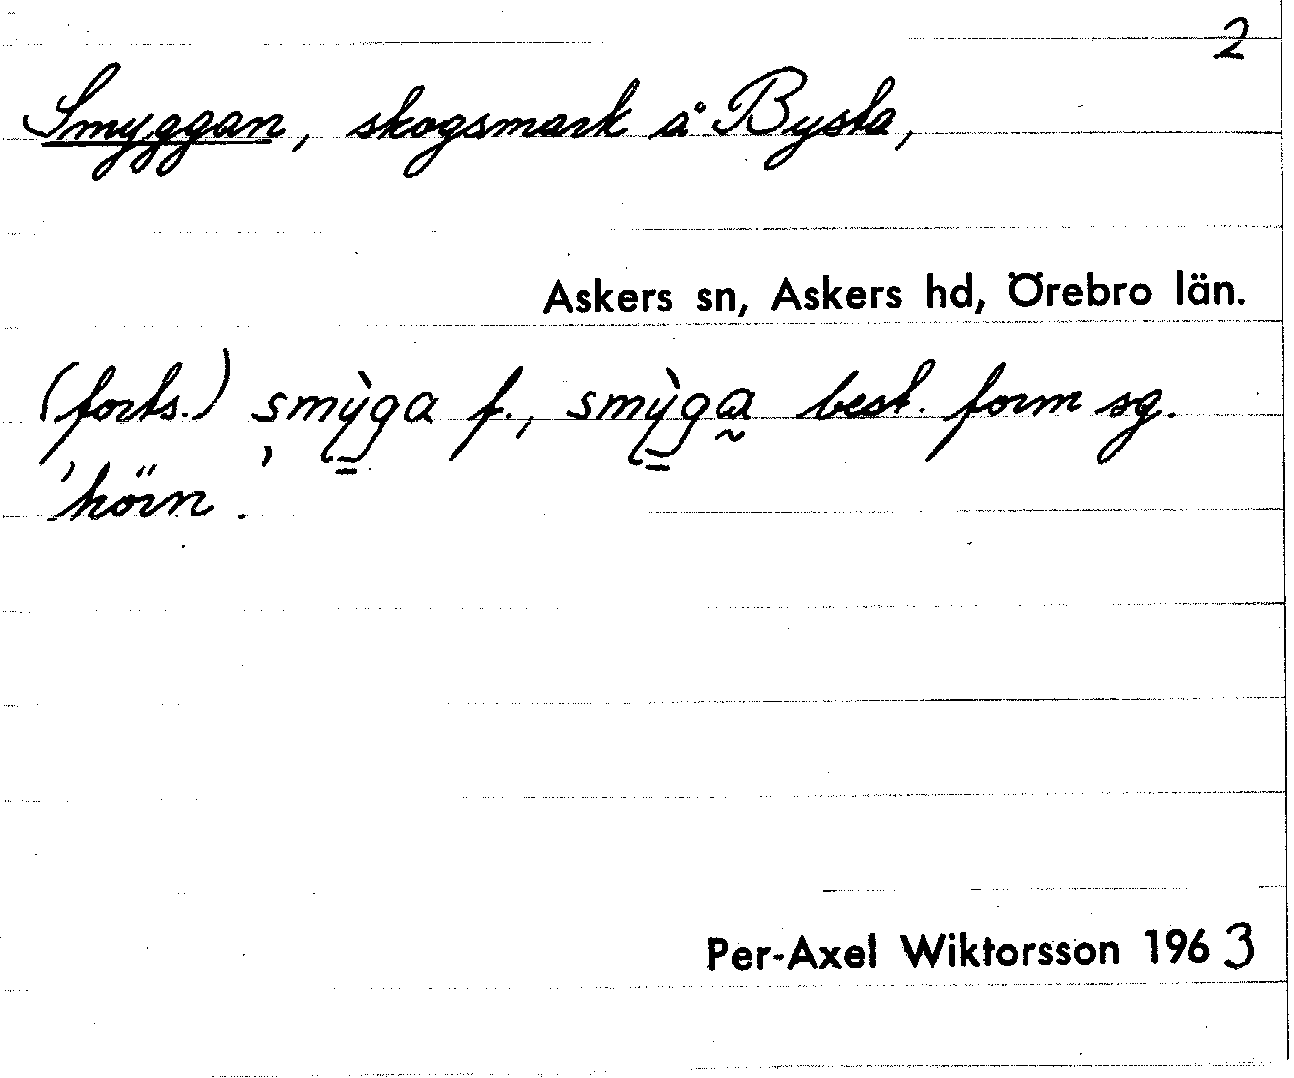 2
Smyggan, skogsmark å Bysta,
Askers sn, Askers hd, Örebro län.
(forts.) smỳga f., smỳga̰ best. form sg.
'hörn'.
Per-Axel Wiktorsson 1963